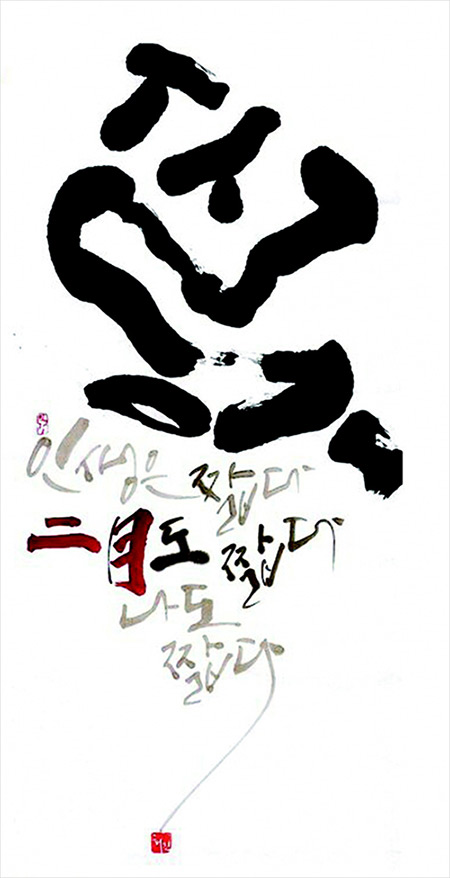 인생은 짧다
二月도 짧다
나도
짧다